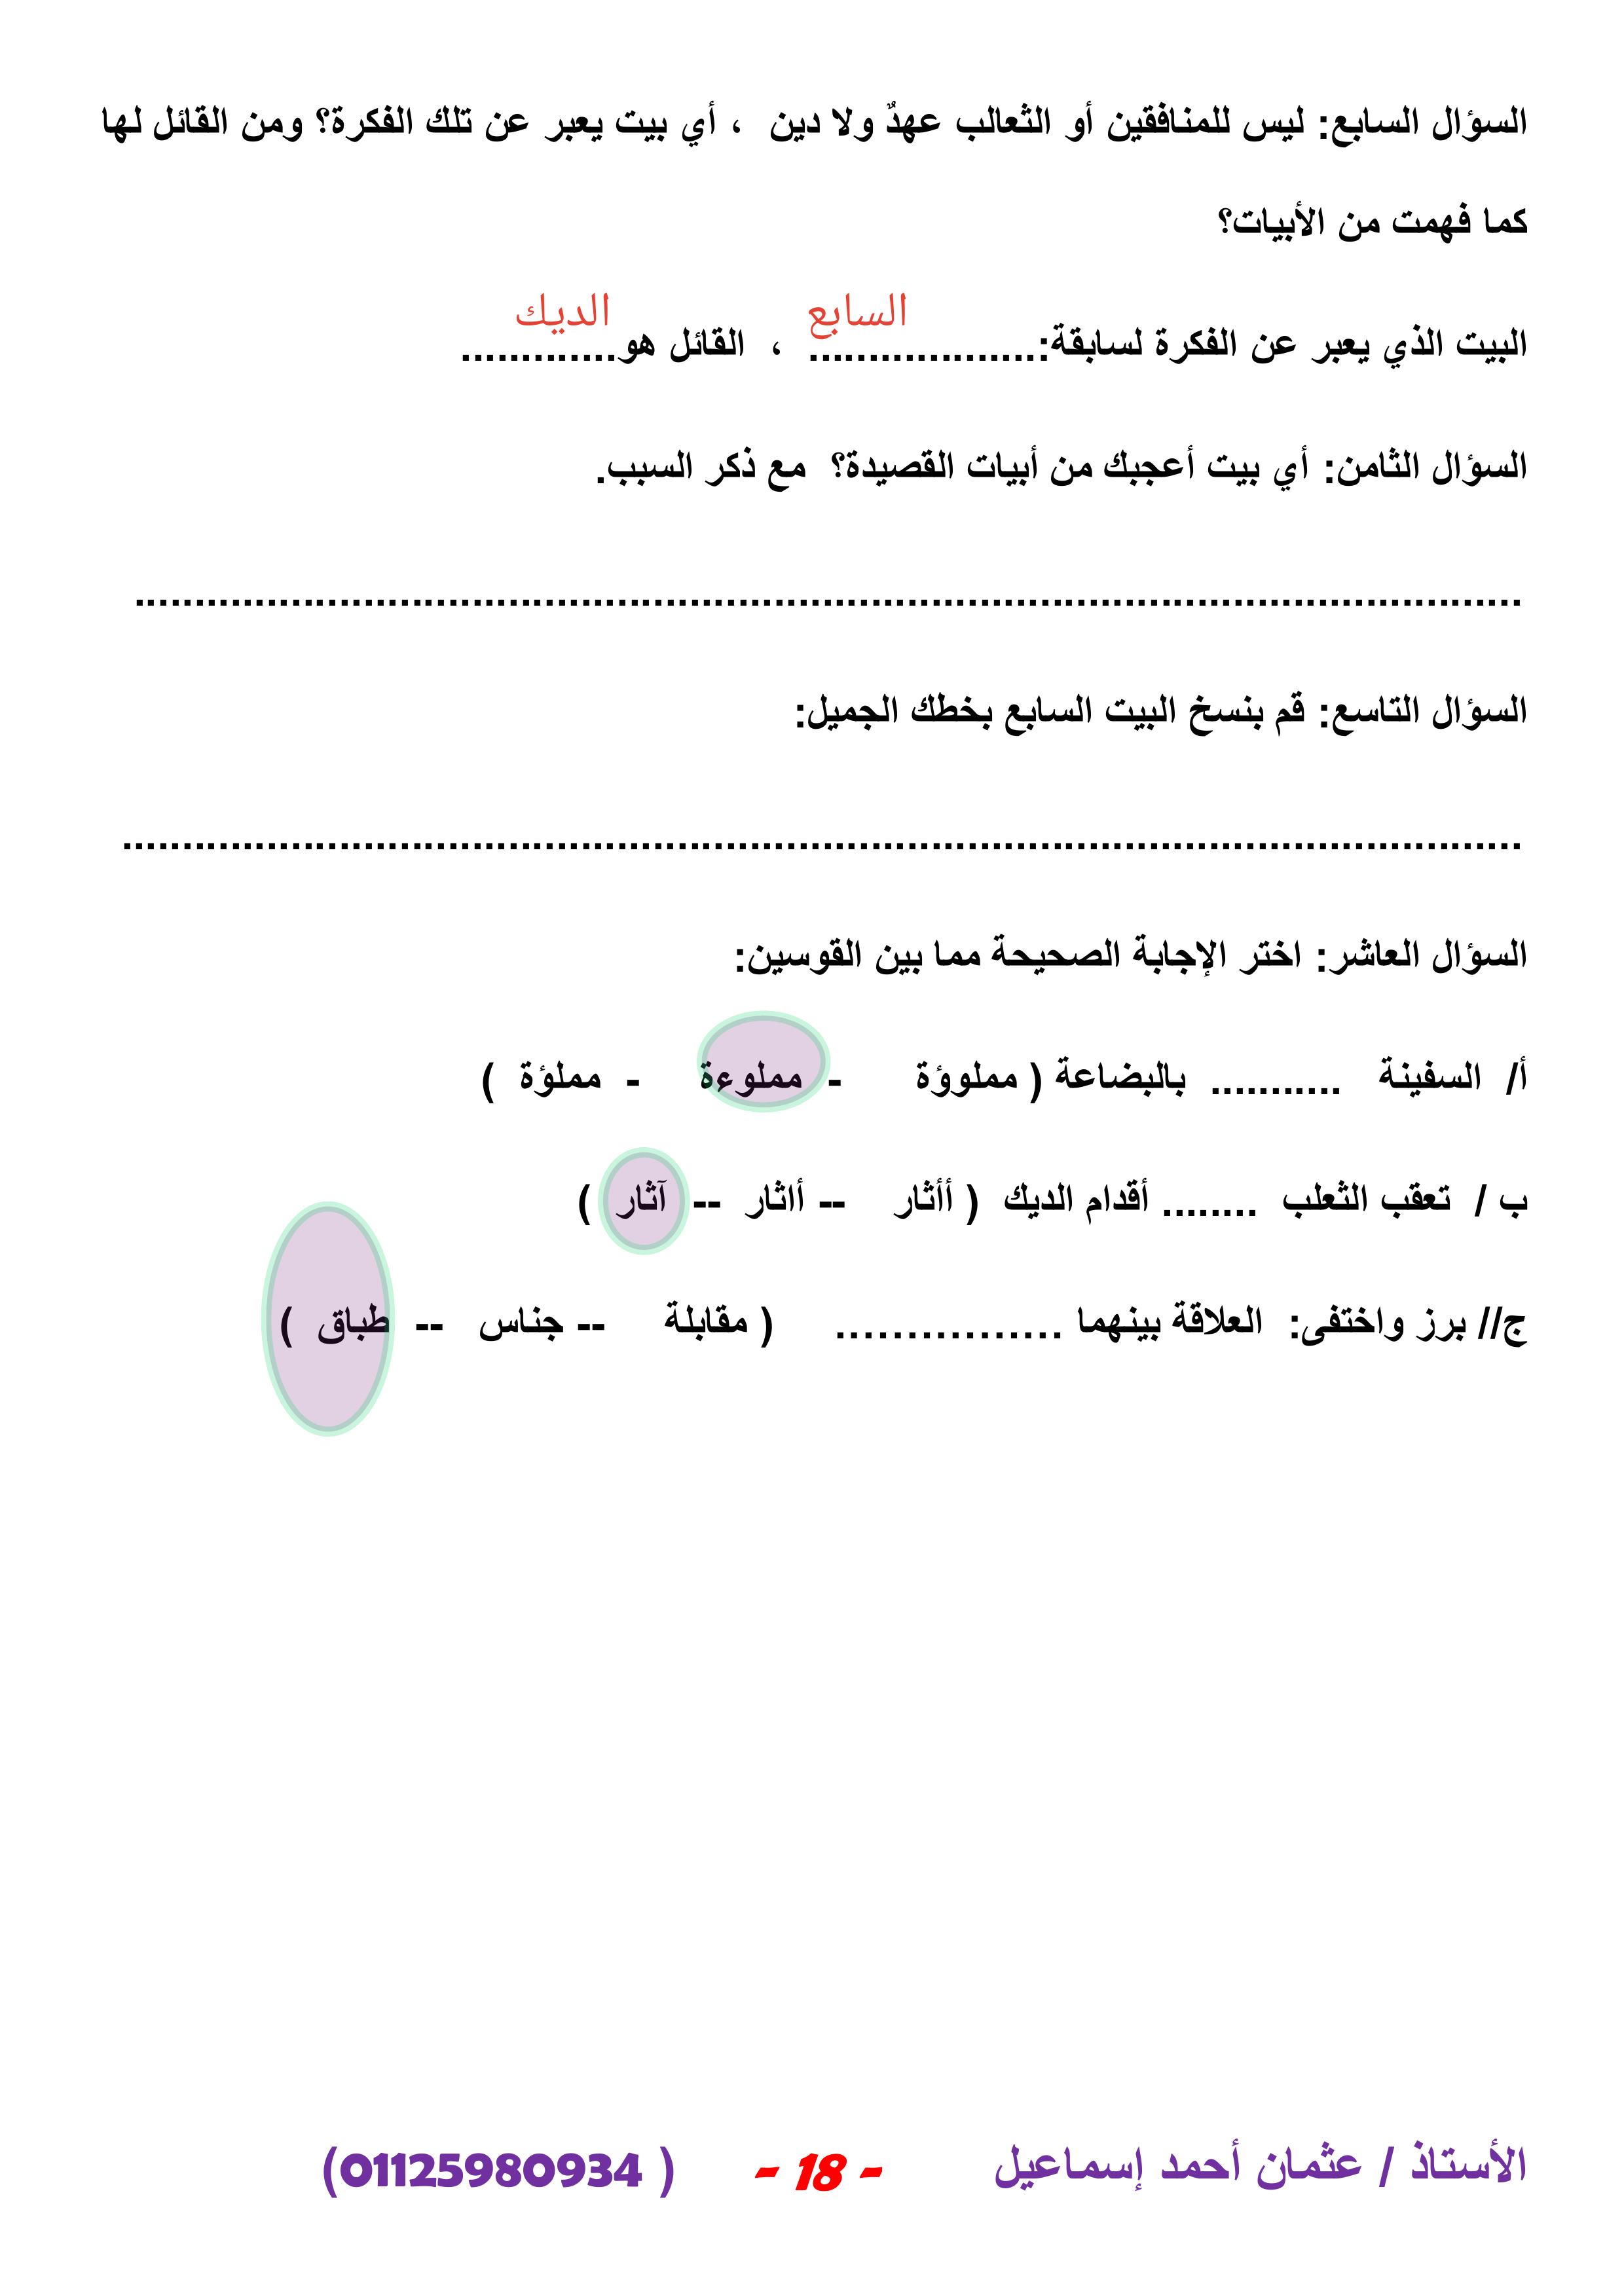 السؤال السابع: ليس للمنافقين أو الثعالب عهدٌ ولا دين ، أي بيت يعبر عن تلك الفكرة؟ ومن القائل لها
كما فهمت من الأبيات؟
السابع الديك
البيت الذي يعبر عن الفكرة لسابقة:................... ، القائل هو.............
السؤال الثامن: أي بيت أعجبك من أبيات القصيدة؟ مع ذكر السبب.
....................................................................................................................
السؤال التاسع: قم بنسخ البيت السابع بخطك الجميل:
.....................................................................................................................
السؤال العاشر: اختر الإجابة الصحيحة مما بين القوسين:
أ/ السفينة ........... بالبضاعة ( مملوؤة - مملوءة - مملؤة )
ب / تعقب الثعلب ........ أقدام الديك ( أأثار -- أاثار -- آثار )
ج// برز واختفى: العلاقة بينهما ................ ( مقابلة -- جناس -- طباق )
الأستاذ / عثمان أحمد إسماعيل - 18 - ( 01125980934)